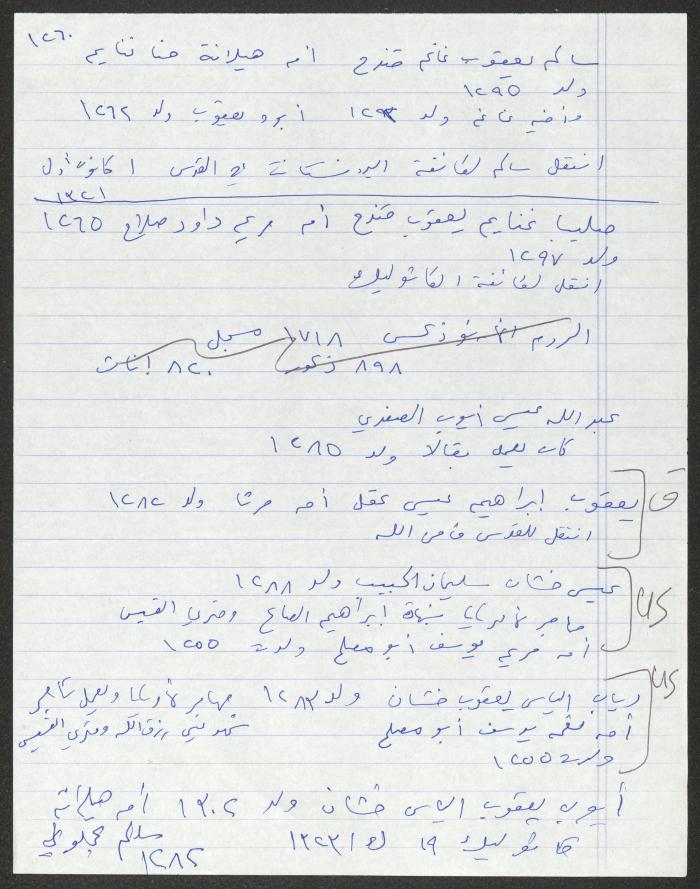 سالم يعقوب غانم قندح أمه هيلانة حنا غنايم ١٢٦٠
ولد ١٢٩٥
وأخيه غانم ولد ١٢٩٣ أبوه يعقوب ولد ١٢٦٢
انتقل سالم لطائفة البروتستانت في القدس ١ كانون أول
١٣٢١
صليبا غنايم يعقوب قندح أمه مريم داود صلاح ١٢٦٥
ولد ١٢٩٧
انتقل لطائفة الكاثوليك
الروم الارثوذكس ١٧١٨ مسجل
٨٩٨ ذكور ٨٢٠ إناث
عبد الله عيسى أيوب الصفدي
كان يعمل بقالا ولد ١٢٨٥
يعقوب ابراهيم عيسى عقل أمه مرتا ولد ١٢٨٢ ق
انتقل للقدس
عيسى خشان سليمان الحبيب ولد ١٢٨٨
مهاجر لأمريكا بشهادة ابراهيم الصاع وخوري القيس US
أمه مريم يوسف أبو مصلح ولدت ١٢٥٥
دياب الياس يعقوب خشان ولد ١٢٨٣ مهاجر لأمريكا ويعمل تاجر US
أمه يوسف أبو مصلح رزق الله وخوري القيس
ولدت ١٢٥٥
أيوب يعقوب الياس خشان ولد ١٣٠٢ أمه هيلانة
كاثوليك ١٩ ك١ ١٣٢٣ سالم
١٢٨٢